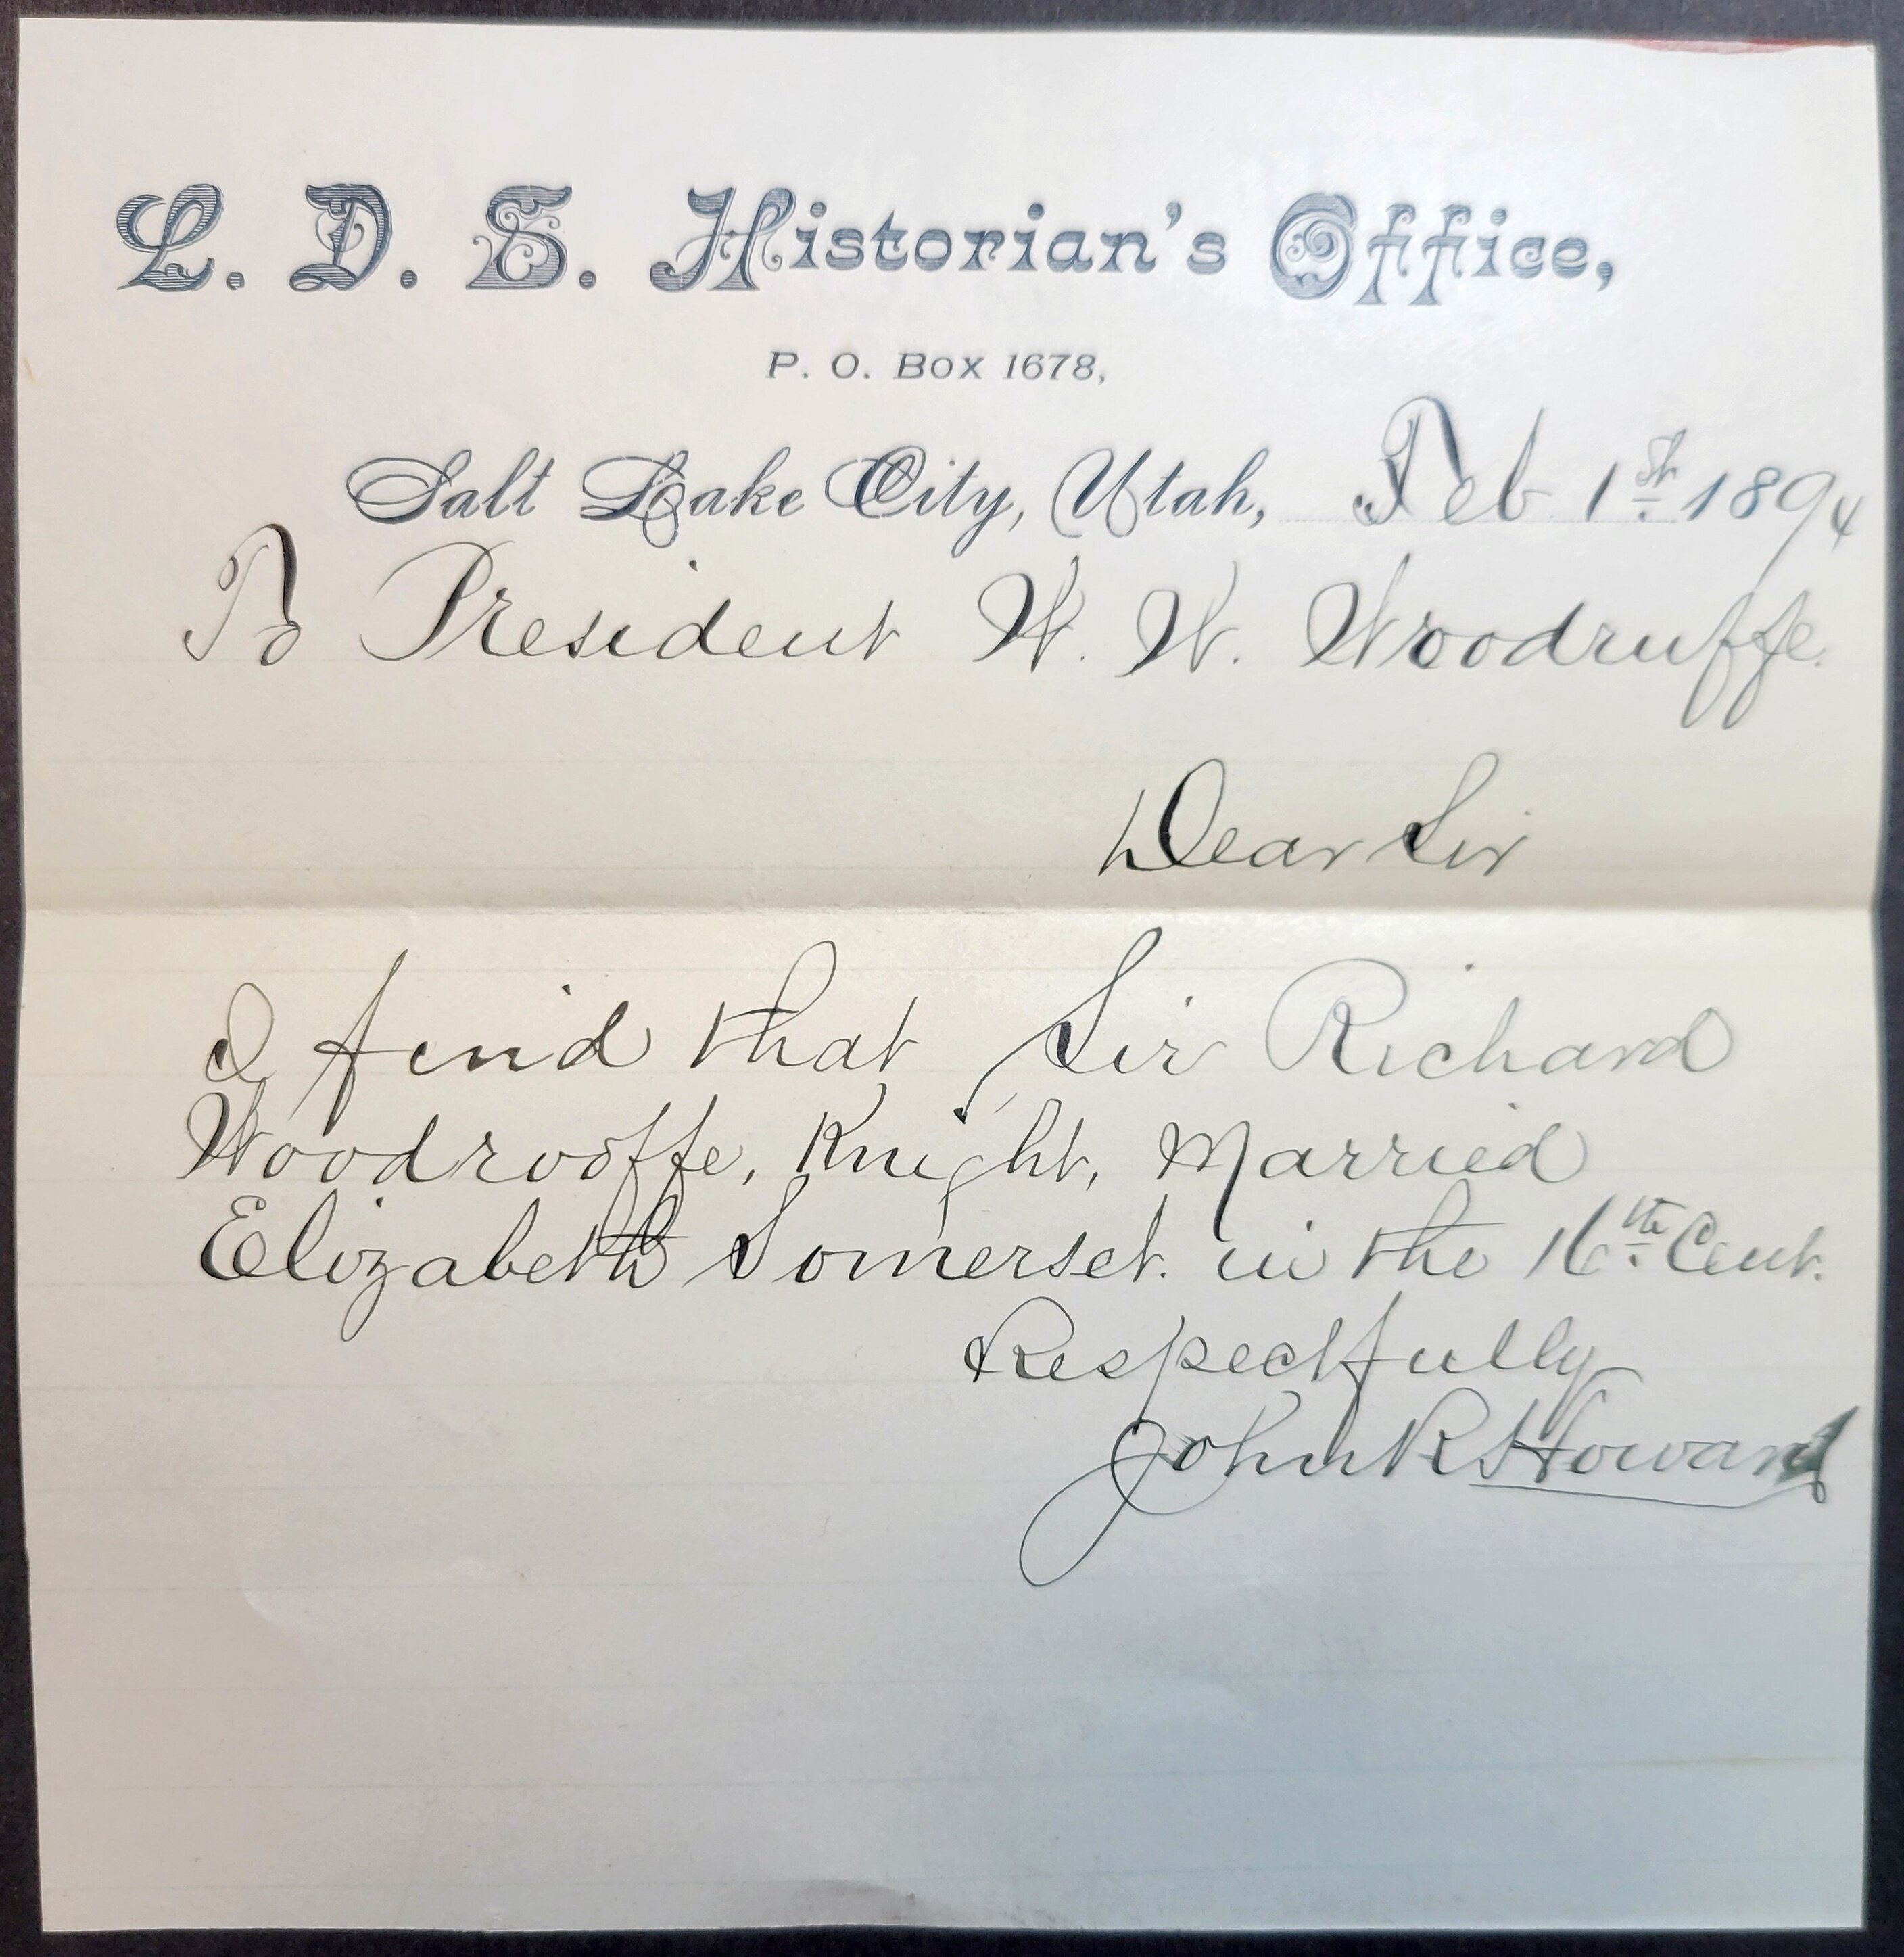 L. D. S. Historian's Office,
P. O. Box 1678,
Salt Lake City, Utah, Feb 1st 1894
To President W. W. Woodruffe.
Dear Sir
I find that Sir Richard
Woodrooffe, Knight, Married
Elizabeth Somerset. in the 16th Cent.
Respectfully
John R Howard